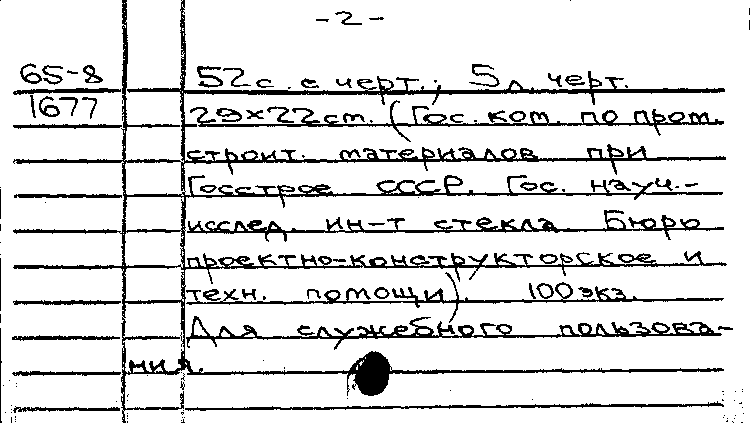 -2-
65-8 52с. с черт.; 5л. черт.
1677 29×22ст. (Гос. ком. по пром.
строит. материалов при
Госстрое СССР. Гос. науч.-
исслед. ин-т стекла. Бюро
проектно-конструкторское и
техн. помощи). 100 экз.
Для служебного пользова-
ния.